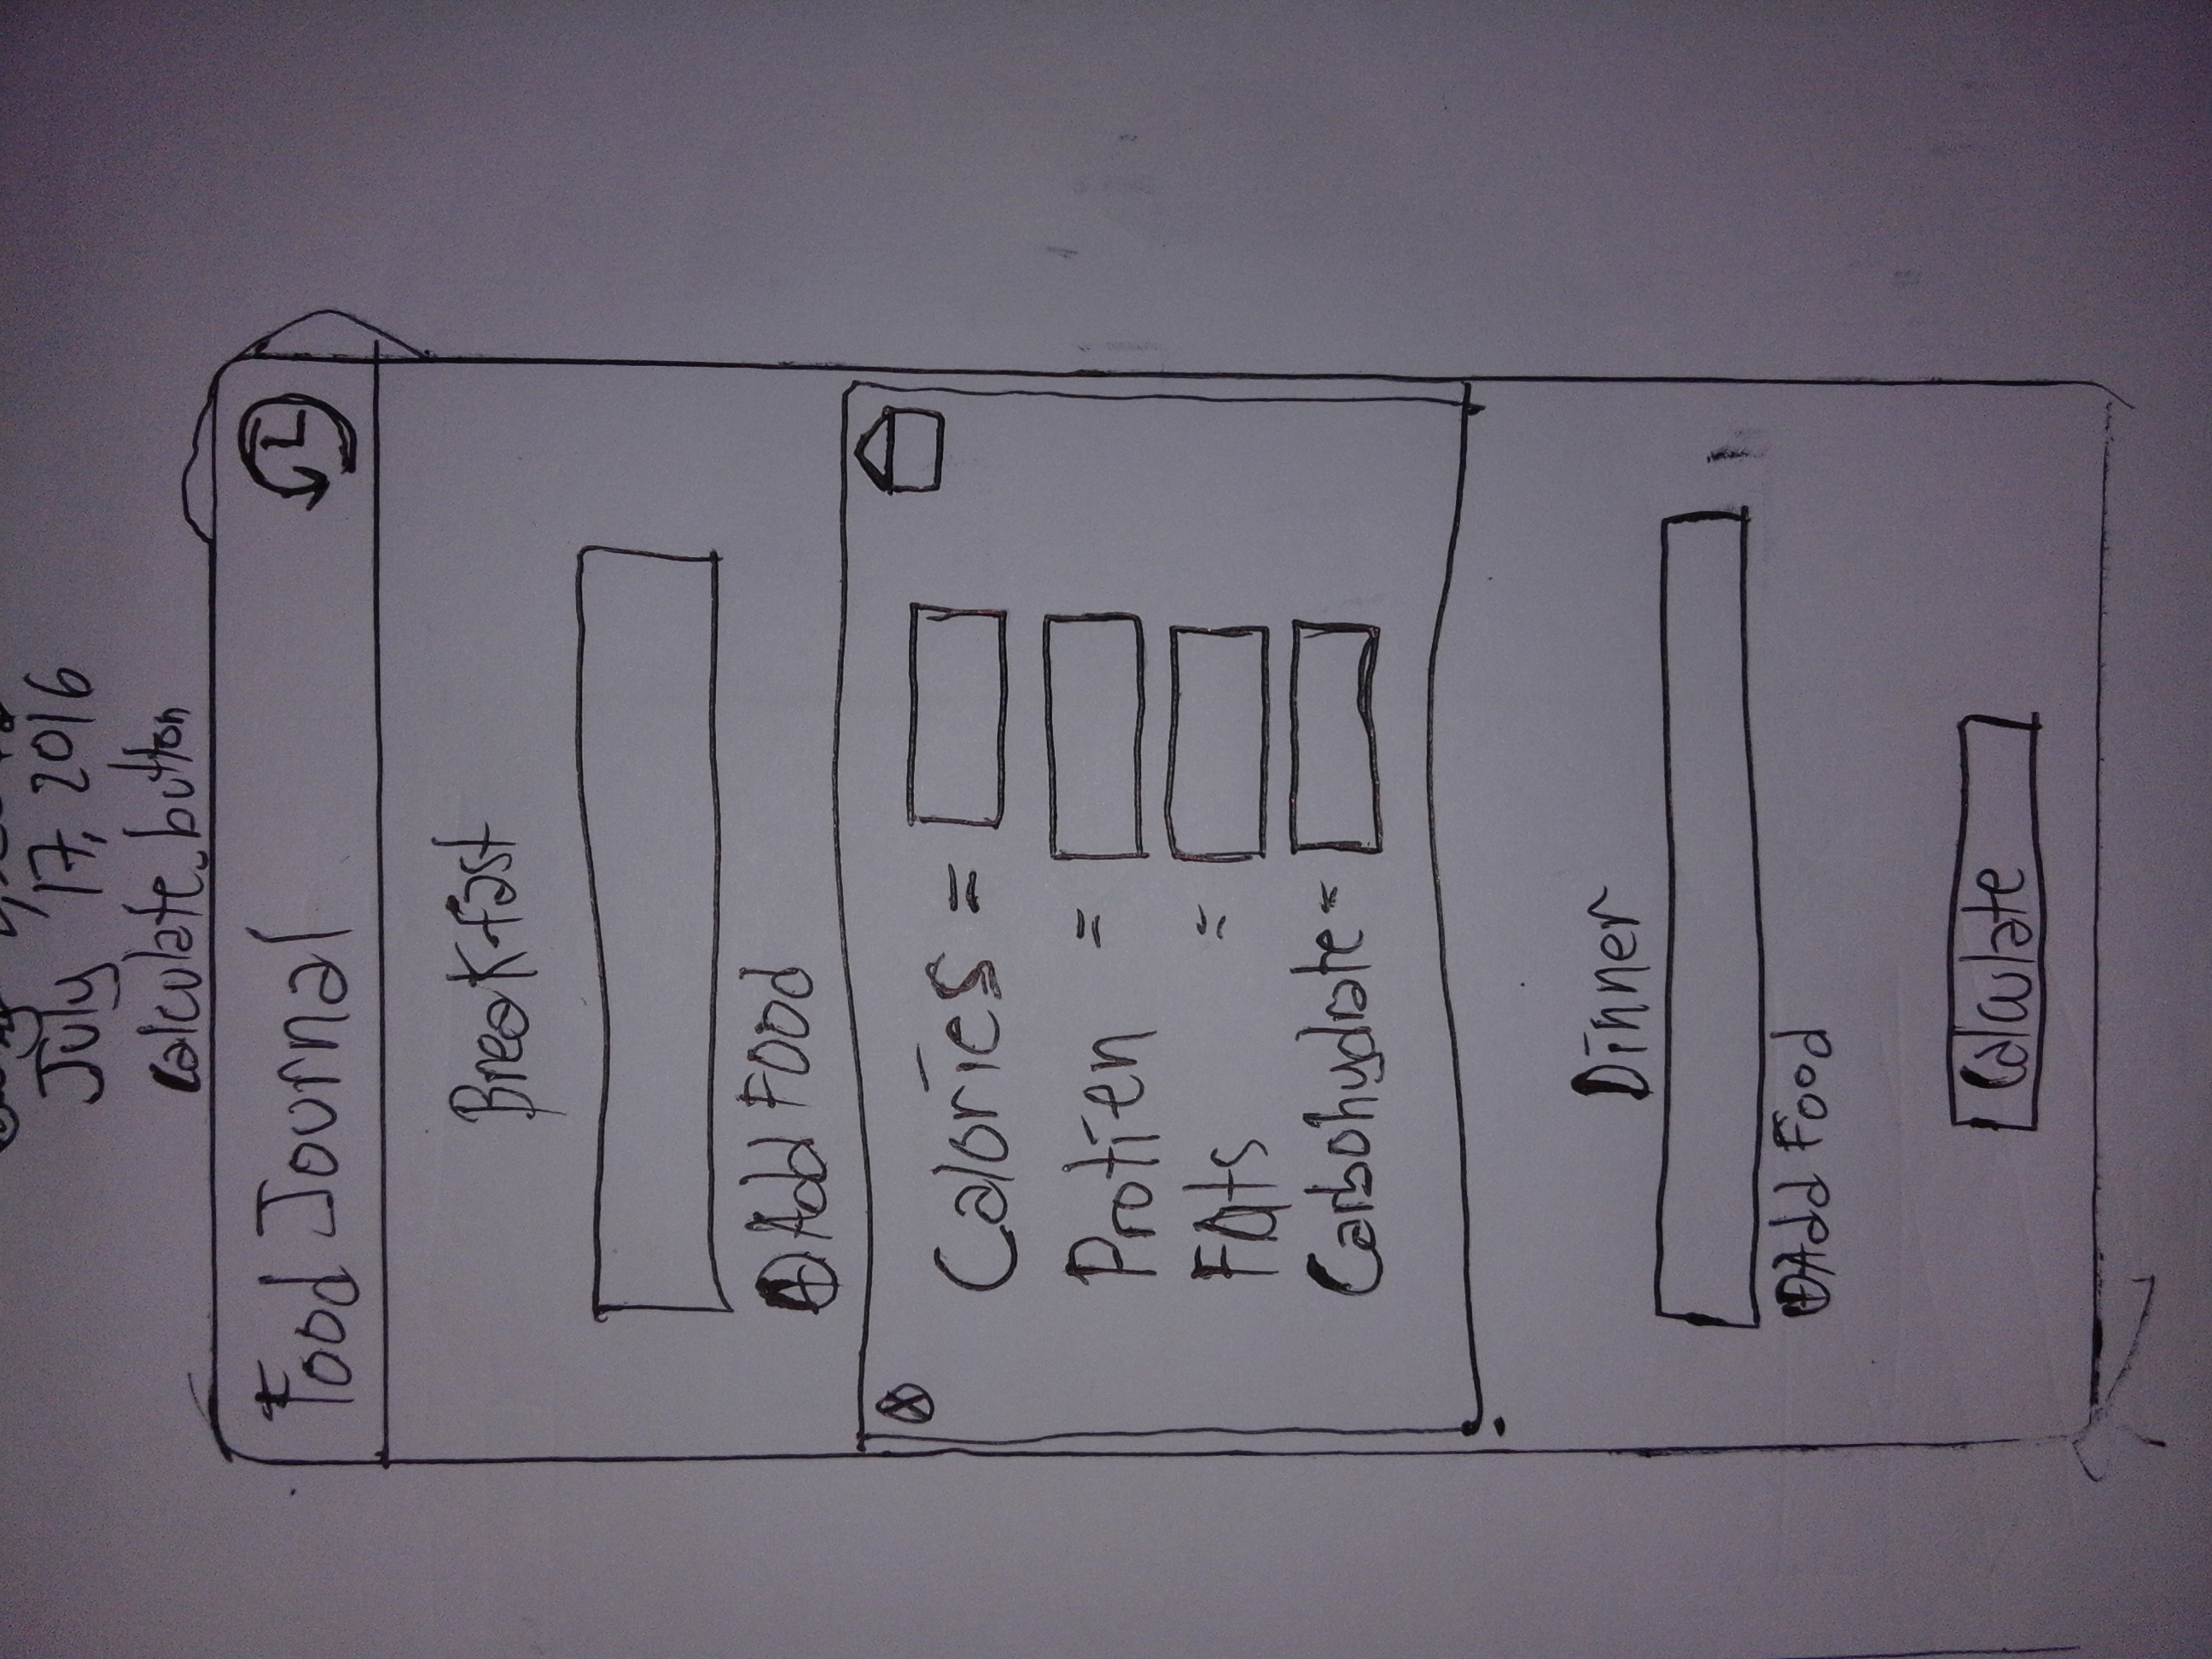 July 17, 2016
Calculate_button
Food Journal
Breakfast
Add Food
Calories =
Protien =
Fats =
Carbohydrate =
Dinner
Add Food
Calculate